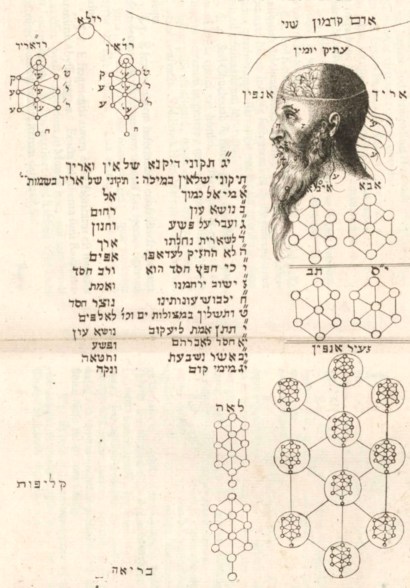 אדם קדמון שני
רדלא
רדאריך רדאין
עתיק יומין
אריך אנפין
יג תקוני דיקנא של אין ואריך
תיקוני שלאין במיכה : תקוני של אריך בשמות
א מי אל כמוך אל
ב נושא עון רחום
ג ועבר על פשע וחנון
ד לשארית נחלתו ארך
ה לא החזיק לעד אפו אפים
ו כי חפץ חסד הוא ורב חסד
ז ישוב ירחמנו ואמת
ח יכבוש עונותינו נוצר חסד
ט ותשליך במצולות ים וכו לאלפים
י תתן אמת ליעקב נושא עון
יא חסד לאברהם ופשע
יב אשר נשבעת וחטאה
יג מימי קדם ונקה
אבא אימא
י"ס תב
זעיר אנפין
לאה
קליפות
בריאה